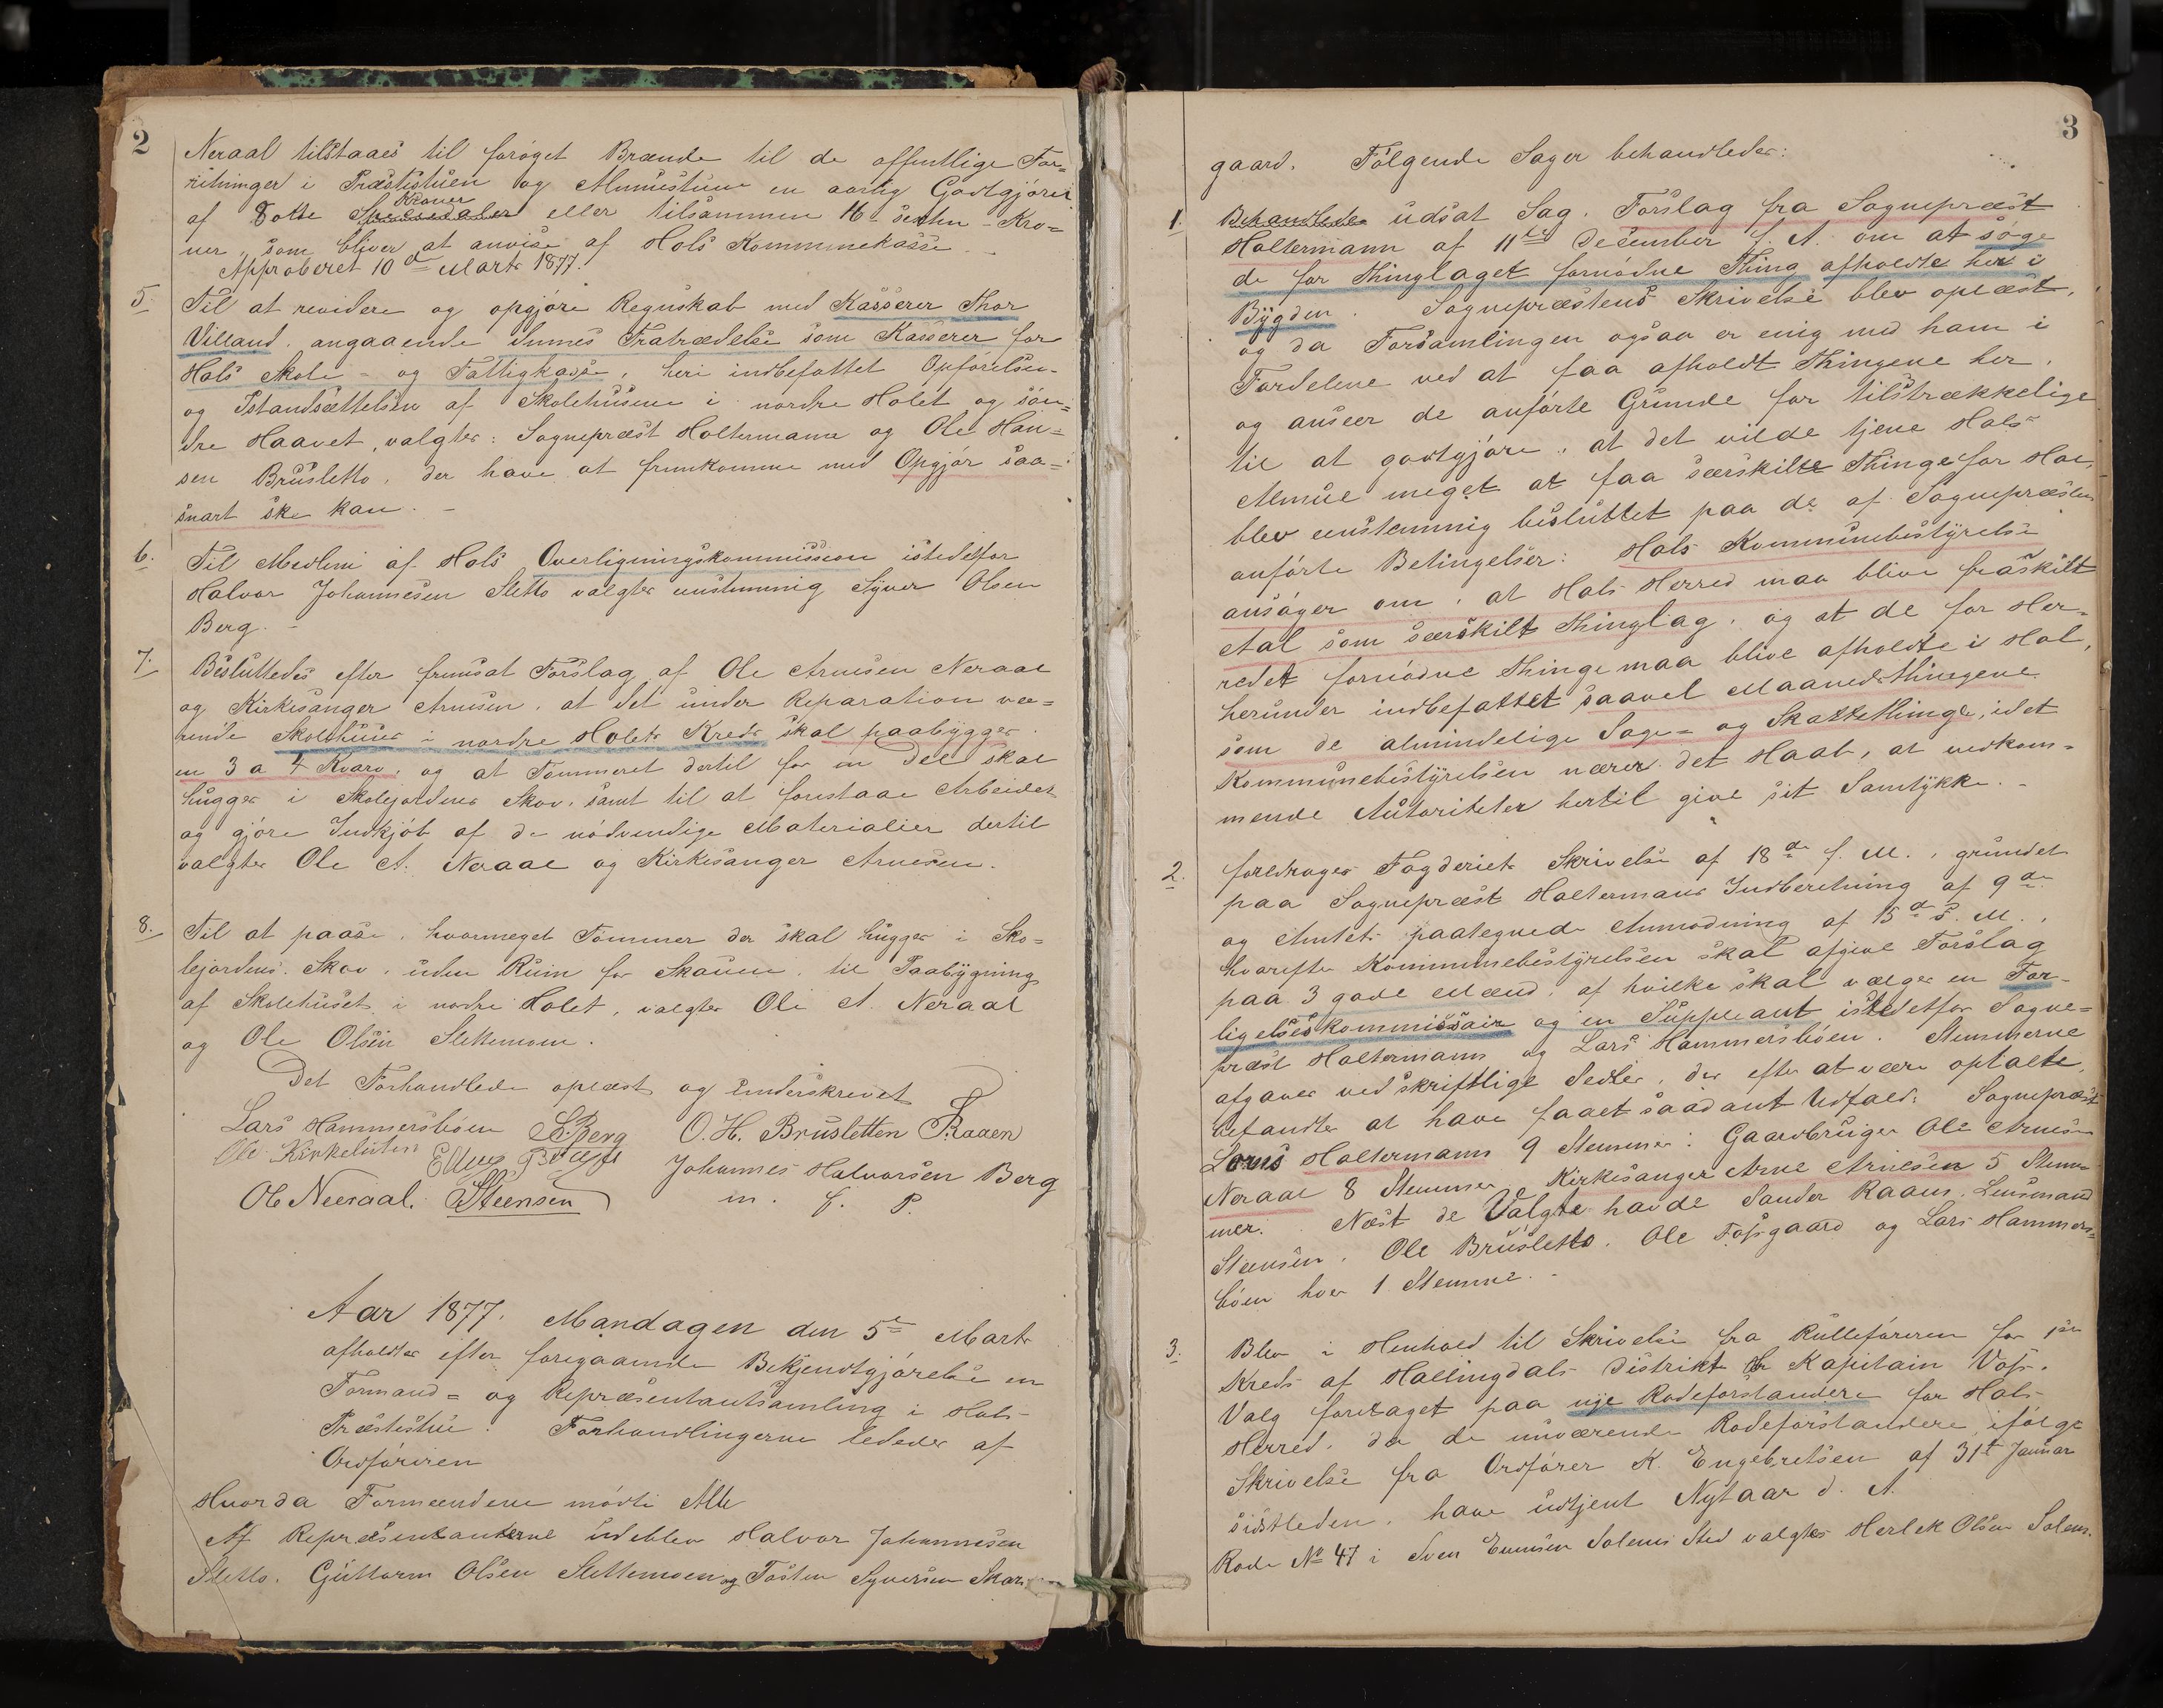 2
Neraal tilstaaes til forøget Brænde til de offentlige For=
retninger i Præstestuen og Almuestuen en aarlig Godtgjørelse
Kroner
af 8 otte Speciedaler eller tilsammen 16 - sexten - Kro=
ner, som bliver at anvise af Hols Kommunekasse
Approberet 10de Marts 1877.
5. Til at revidere og opgjøre Regnskab med Kasserer Thor
Villand, angaaende dennes Fratrædelse som Kasserer for
Hols Skole- og Fattigkasse, heri indbefattet Opførelsen
og Istandsættelsen af Skolehusene i nordre Holet og søn=
dre Haavet, valgtes: Sognepræst Holtermann og Ole Han=
sen Brusletto, der have at fremkomme med Opgjør saa=
snart ske kan. -
6. Til Medlem af Hols Overligningskommission istedetfor
Halvor Johannesen Sletto valgtes enstemmig Syver Olsen
Berg. -
7. Besluttedes efter fremsat Forslag af Ole Arnesen Neraal
og Kirkesanger Arnesen, at det under Reparation væ=
rende Skolehuus i nordre Holets Kreds skal paabygges
en 3 a 4 Kvarv, og at Tømmeret dertil for en Deel skal
hugges i Skolejordens Skov, samt til at forestaae Arbeidet
og gjøre Indkjøb af de nødvendige Materialier dertil
valgtes Ole A. Neraal og Kirkesanger Arnesen.
8. Til at paase, hvormeget Tømmer der skal hugges i Sko=
lejordens Skov, uden Ruin for Skoven, til Paabygning
af Skolehuset i nordre Holet, valgtes Ole A. Neraal
og Ole Olsen Slettemoen.
Det Forhandlede oplæst og underskrevet
Lars Hammersbøen S. Berg O. H. Brusletten S. Raaen
Ole Kirkebøten Johannes Halvorsen Berg
Ole Neeraal. Steensen m. f. P.
Aar 1877. Mandagen den 5te Marts
afholdtes efter foregaaende Bekjendtgjørelse en
Formand= og Repræsentantsamling i Hols
Præstestue. Forhandlingerne lededes af
Ordføreren
Hvorda Formændene mødte Alle
Af Repræsentanterne udeblev Halvor Johannesen
Sletto, Guttorm Olsen Slettemoen og Tosten Syversen Skars=
3
gaard. Følgende Sager behandledes:
1. Behandledes udsat Sag. Forslag fra Sognepræst
Holtermann af 11te December f. A. om at søge
de for Thinglaget fornødne Thing afholdte her i
Bygden. Sognepræstens Skrivelse blev oplæst,
og da Forsamlingen ogsaa er enig med ham i
Fordelene ved at faa afholdt Thingene her,
og anseer de anførte Grunde for tilstrækkelige
til at godtgjøre, at det vilde tjene Hols
Almue meget at faa særskilte Thinge for Hol,
blev eenstemmig besluttet paa de af Sognepræsten
anførte Betingelser: Hols Kommunebestyrelse
ansøger om, at Hols Herred maa blive fraskilt
Aal som særskilt Thinglag, og at de for Her=
redet fornødne Thinge maa blive afholdte i Hol,
herunder indbefattet saavel Maanedsthingene
som de almindelige Sage= og Skattethinge, idet
Kommunebestyrelsen nærer det Haab, at vedkom=
mende Autoriteter hertil give sit Samtykke. -
2. foredrages Fogderiets Skrivelse af 18de f. M., grundet
paa Sognepræst Holtermans Indberetning af 9de
og Amtets paategnede Anmodning af 15de s. M.,
hvorefter Kommunebestyrelsen skal afgive Forslag
paa 3 gode Mænd, af hvilke skal vælges en For=
ligelseskommissair og en Suppleant istedetfor Sogne=
præst Holtermann og Lars Hammersbøen. Stemmerne
afgaves ved skriftlige Sedler, der efter at være optalte,
befandtes at have faaet saadant Udfald: Sognepræst
Lorns Holtermann 9 Stemmer: Gaardbruger Ole Arnesen
Neraal 8 Stemmer, Kirkesanger Arne Arnesen 5 Stem=
mer. Næst de Valgte havde Sander Raaen, Lensmand
Steensen, Ole Brusletto, Ole Fossgaard og Lars Hammers=
bøen hver 1 Stemme. -
3. Blev i Henhold til Skrivelse fra Rulleføreren for
Kreds af Hallingdals Distrikt Hr Kapitain Voss.
Valg foretaget paa nye Rodeforstandere for Hols
Herred, da de nuværende Rodeforstandere ifølge
Skrivelse fra Ordfører K. Engebretsen af 31te Januar
sidstleden, have udtjent Nytaar d. A.
Rode No 47 i Sven Evensen Solems Sted valgtes Herlek Olsen Solem.